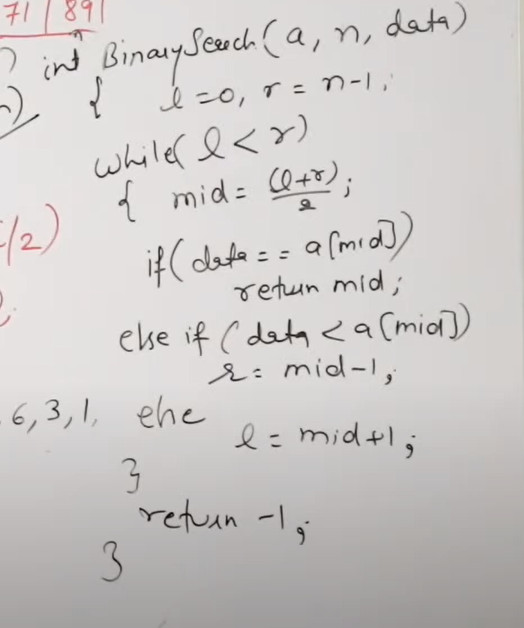 71 | 89
int BinarySearch(a, n, data)
{ l=0, r = n-1;
while( l < r)
{ mid = (l+r)/2;
/2)
if( data == a[mid])
return mid;
else if ( data < a[mid])
r = mid-1;
6,3,1, else
l = mid+1;
}
return -1;
}